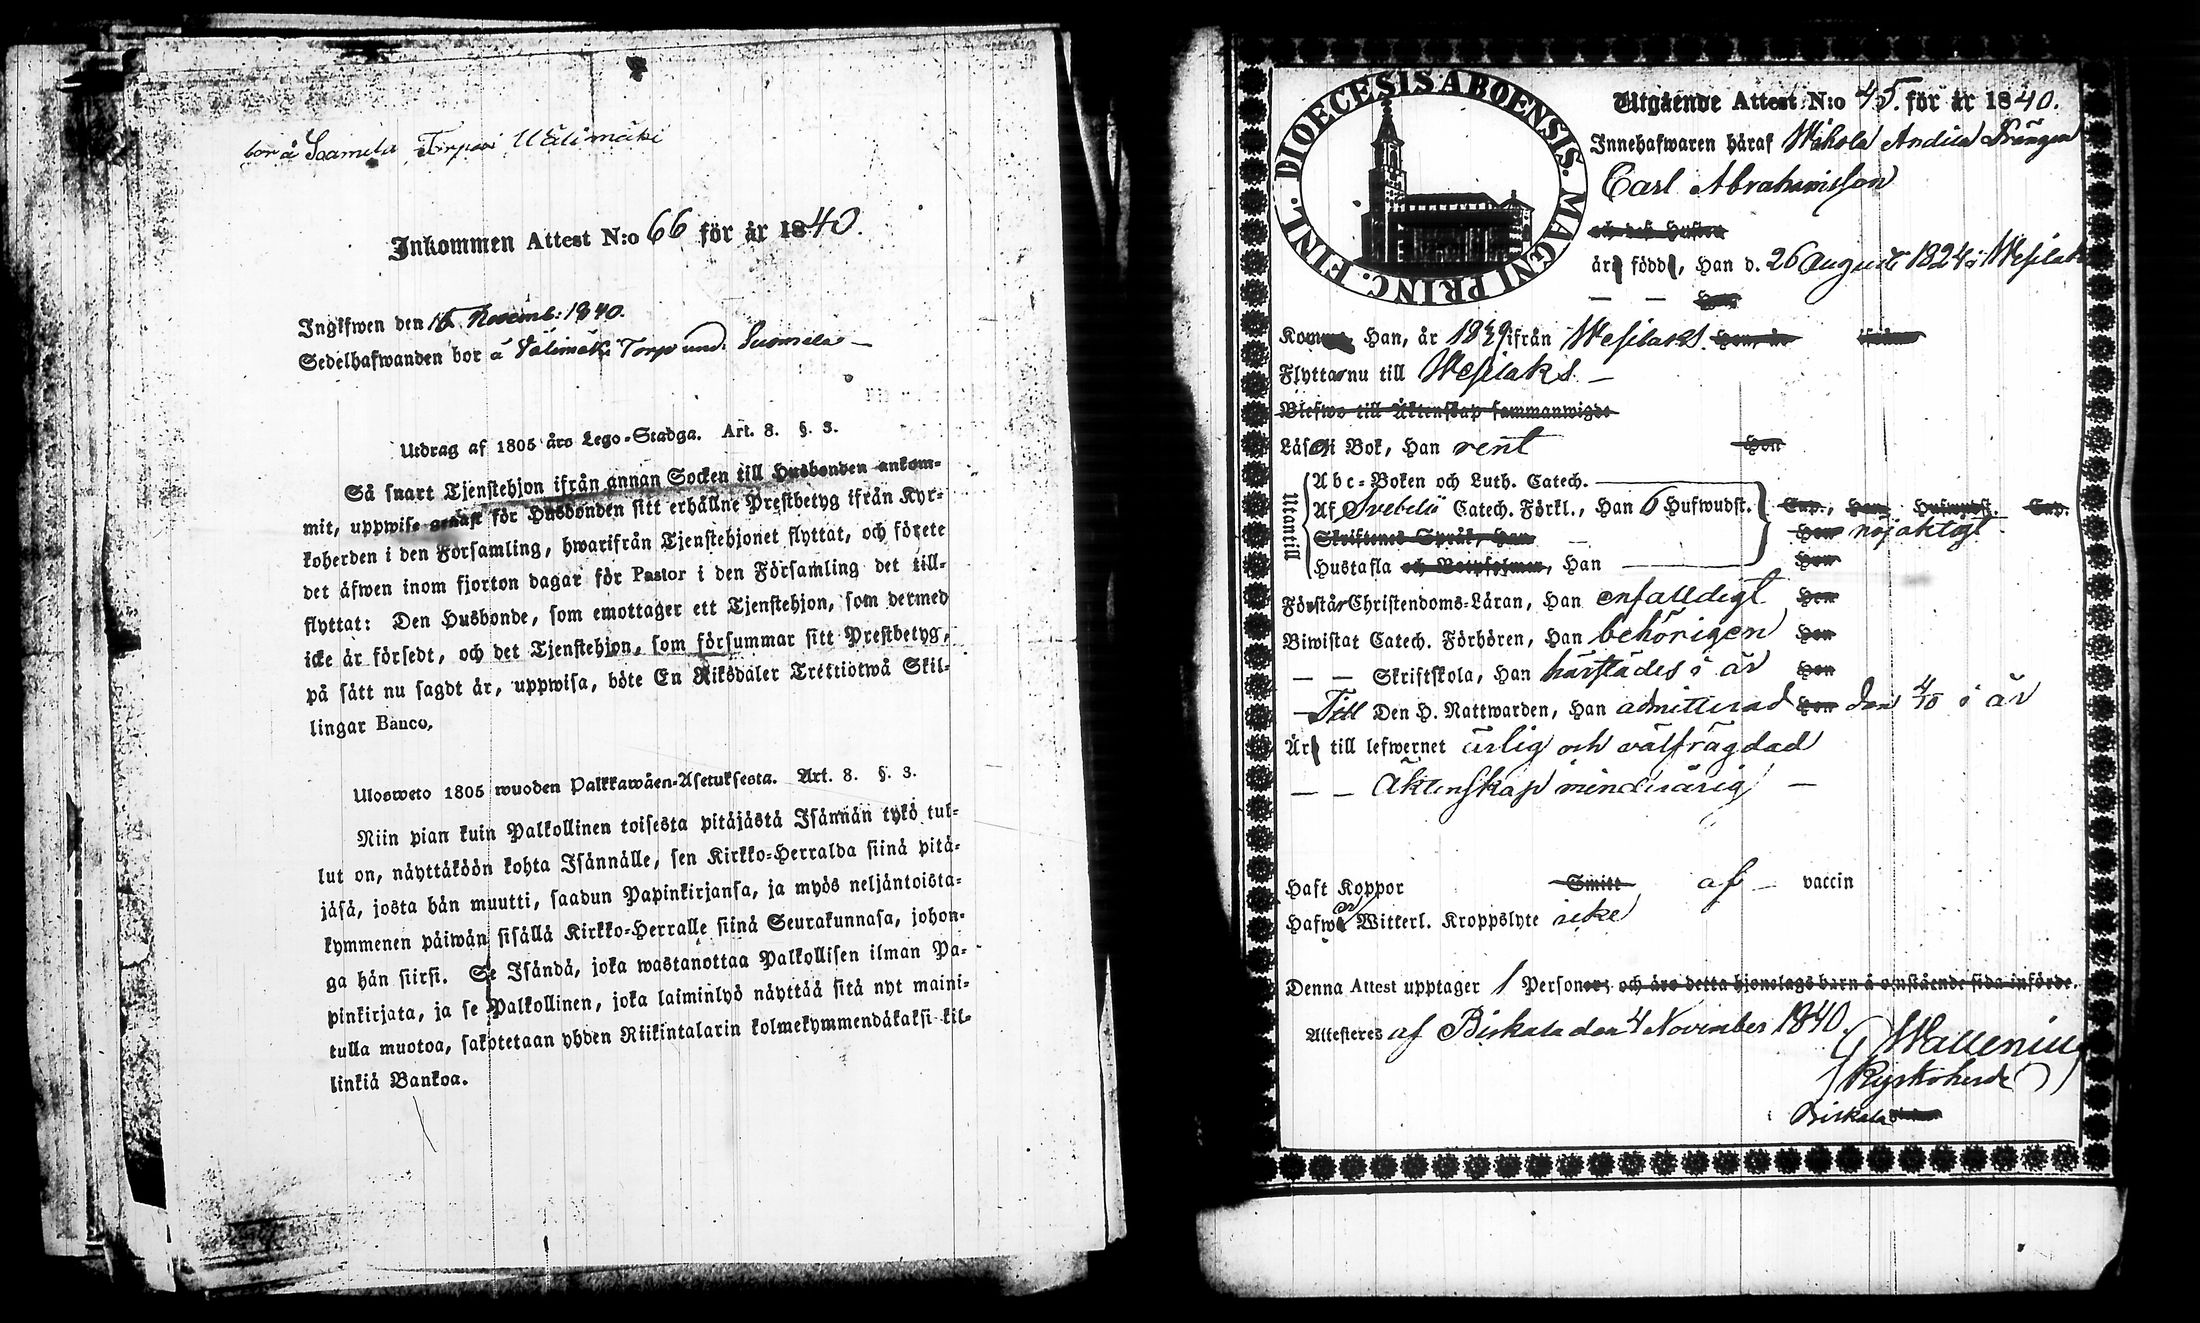 bor å Saamela Torpai Wälimäki
Inkommen Attest N:o 66 för år 1840.
Ingifwen den 15 Novemb: 1840.
Sedelhafwanden bor å Välimäki Torp und. Suomela —
Utdrag af 1805 års Lego-Stadga. Art. 8. §. 3.
Så snart Tjenstehjon ifrån annan Socken till Husbonden ankom-
mit, uppwise genast för Husbonden sitt erhållne Prestbetyg ifrån Kyr-
koherden i den Församling, hwarifrån Tjenstehjonet flyttat, och förete
det äfwen inom fjorton dagar för Pastor i den Församling det till-
flyttat: Den Husbonde, som emottager ett Tjenstehjon, som dermed
icke är försedt, och det Tjenstehjon, som försummar sitt Prestbetyg,
på sätt nu sagdt är, uppwisa, böte En Riksdaler Trettiotwå Skil-
lingar Banco.
Ulosweto 1805 wuoden Palkkawäen-Asetuksesta. Art. 8. §. 3.
Niin pian kuin Palkollinen toisesta pitäjästä Isännän tykö tul-
lut on, näyttäköön kohta Isännälle, sen Kirkko-Herralda siinä pitä-
jäsä, josta hän muutti, saadun Papinkirjansa, ja myös neljäntoista-
kymmenen päiwän sisällä Kirkko-Herralle siinä Seurakunnasa, johon-
ga hän siirsi. Se Isändä, joka wastanottaa Palkollisen ilman Pa-
pinkirjata, ja se Palkollinen, joka laiminlyö näyttää sitä nyt maini-
tulla muotoa, sakotetaan yhden Riikintalarin kolmekymmendäkaksi kil-
linkiä Bankoa.
DIOECESIS ABOENSIS. MAGNI PRINC. FINL.
Utgående Attest N:o 45. för år 1840.
Innehafwaren häraf Wähola Andila Drängen
Carl Abrahamsson
och dess Hustru
är född, Han d. 26 Augusti 1824 i Wesilaks
— — Hon
Kom Han, år 1839 ifrån Wesilaks. Hon, år ifrån
Flyttar nu till Wesilaks —
Blefwo till Äktenskap sammanwigde
Läser i Bok, Han rent Hon
Utantill
Abc-Boken och Luth. Catech.
Af Svebelii Catech. Förkl., Han 6 Hufwudst. Cap., Hon Hufwudst. Cap.
Skriftenes Språk, Han — Hon nöjaktigt
Hustafla och Botpsalmen, Han — Hon
Förstår Christendoms-Läran, Han enfalldigt Hon
Biwistat Catech. Förhören, Han behörigen Hon
— — Skriftskola, Han härstädes i år Hon
— Till Den H. Nattwarden, Han admitterad Hon den 4/10 i år
Är till lefwernet ärlig och välfrägdad
— — Äktenskap minderårig —
Haft Koppor Smitt af — vaccin
Hafwer Witterl. Kroppslyte icke
Denna Attest upptager 1 Personer; och äro detta hjonelags barn å omstående sida införde.
Attesteres af Birkala den 4 November 1840
G Wallenius
Kyrkoherde
Birkala